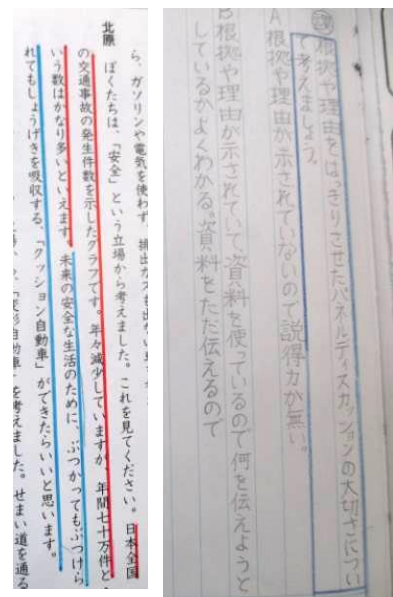 ら、ガソリンや電気を使わず
北原 ぼくたちは、「安全」という立場から考えました。これを見てください。日本全国
の交通事故の発生件数を示したグラフです。年々減少していますが、年間七十万件と
いう数はかなり多いといえます。未来の安全な生活のために、ぶつかってもぶつけら
れてもしょうげきを吸収する、「クッション自動車」ができたらいいと思います。
を考えました。せまい道を通る
根拠や理由をはっきりさせたパネルディスカッションの大切さについ
て考えましょう。
A 根拠や理由が示されていないので説得力が無い。
B 根拠や理由が示されていて、資料を使っているので何を伝えようと
しているかよくわかる。資料をただ伝えるので